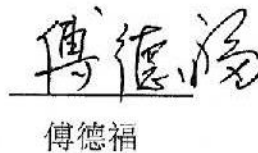 傅德福
傅德福